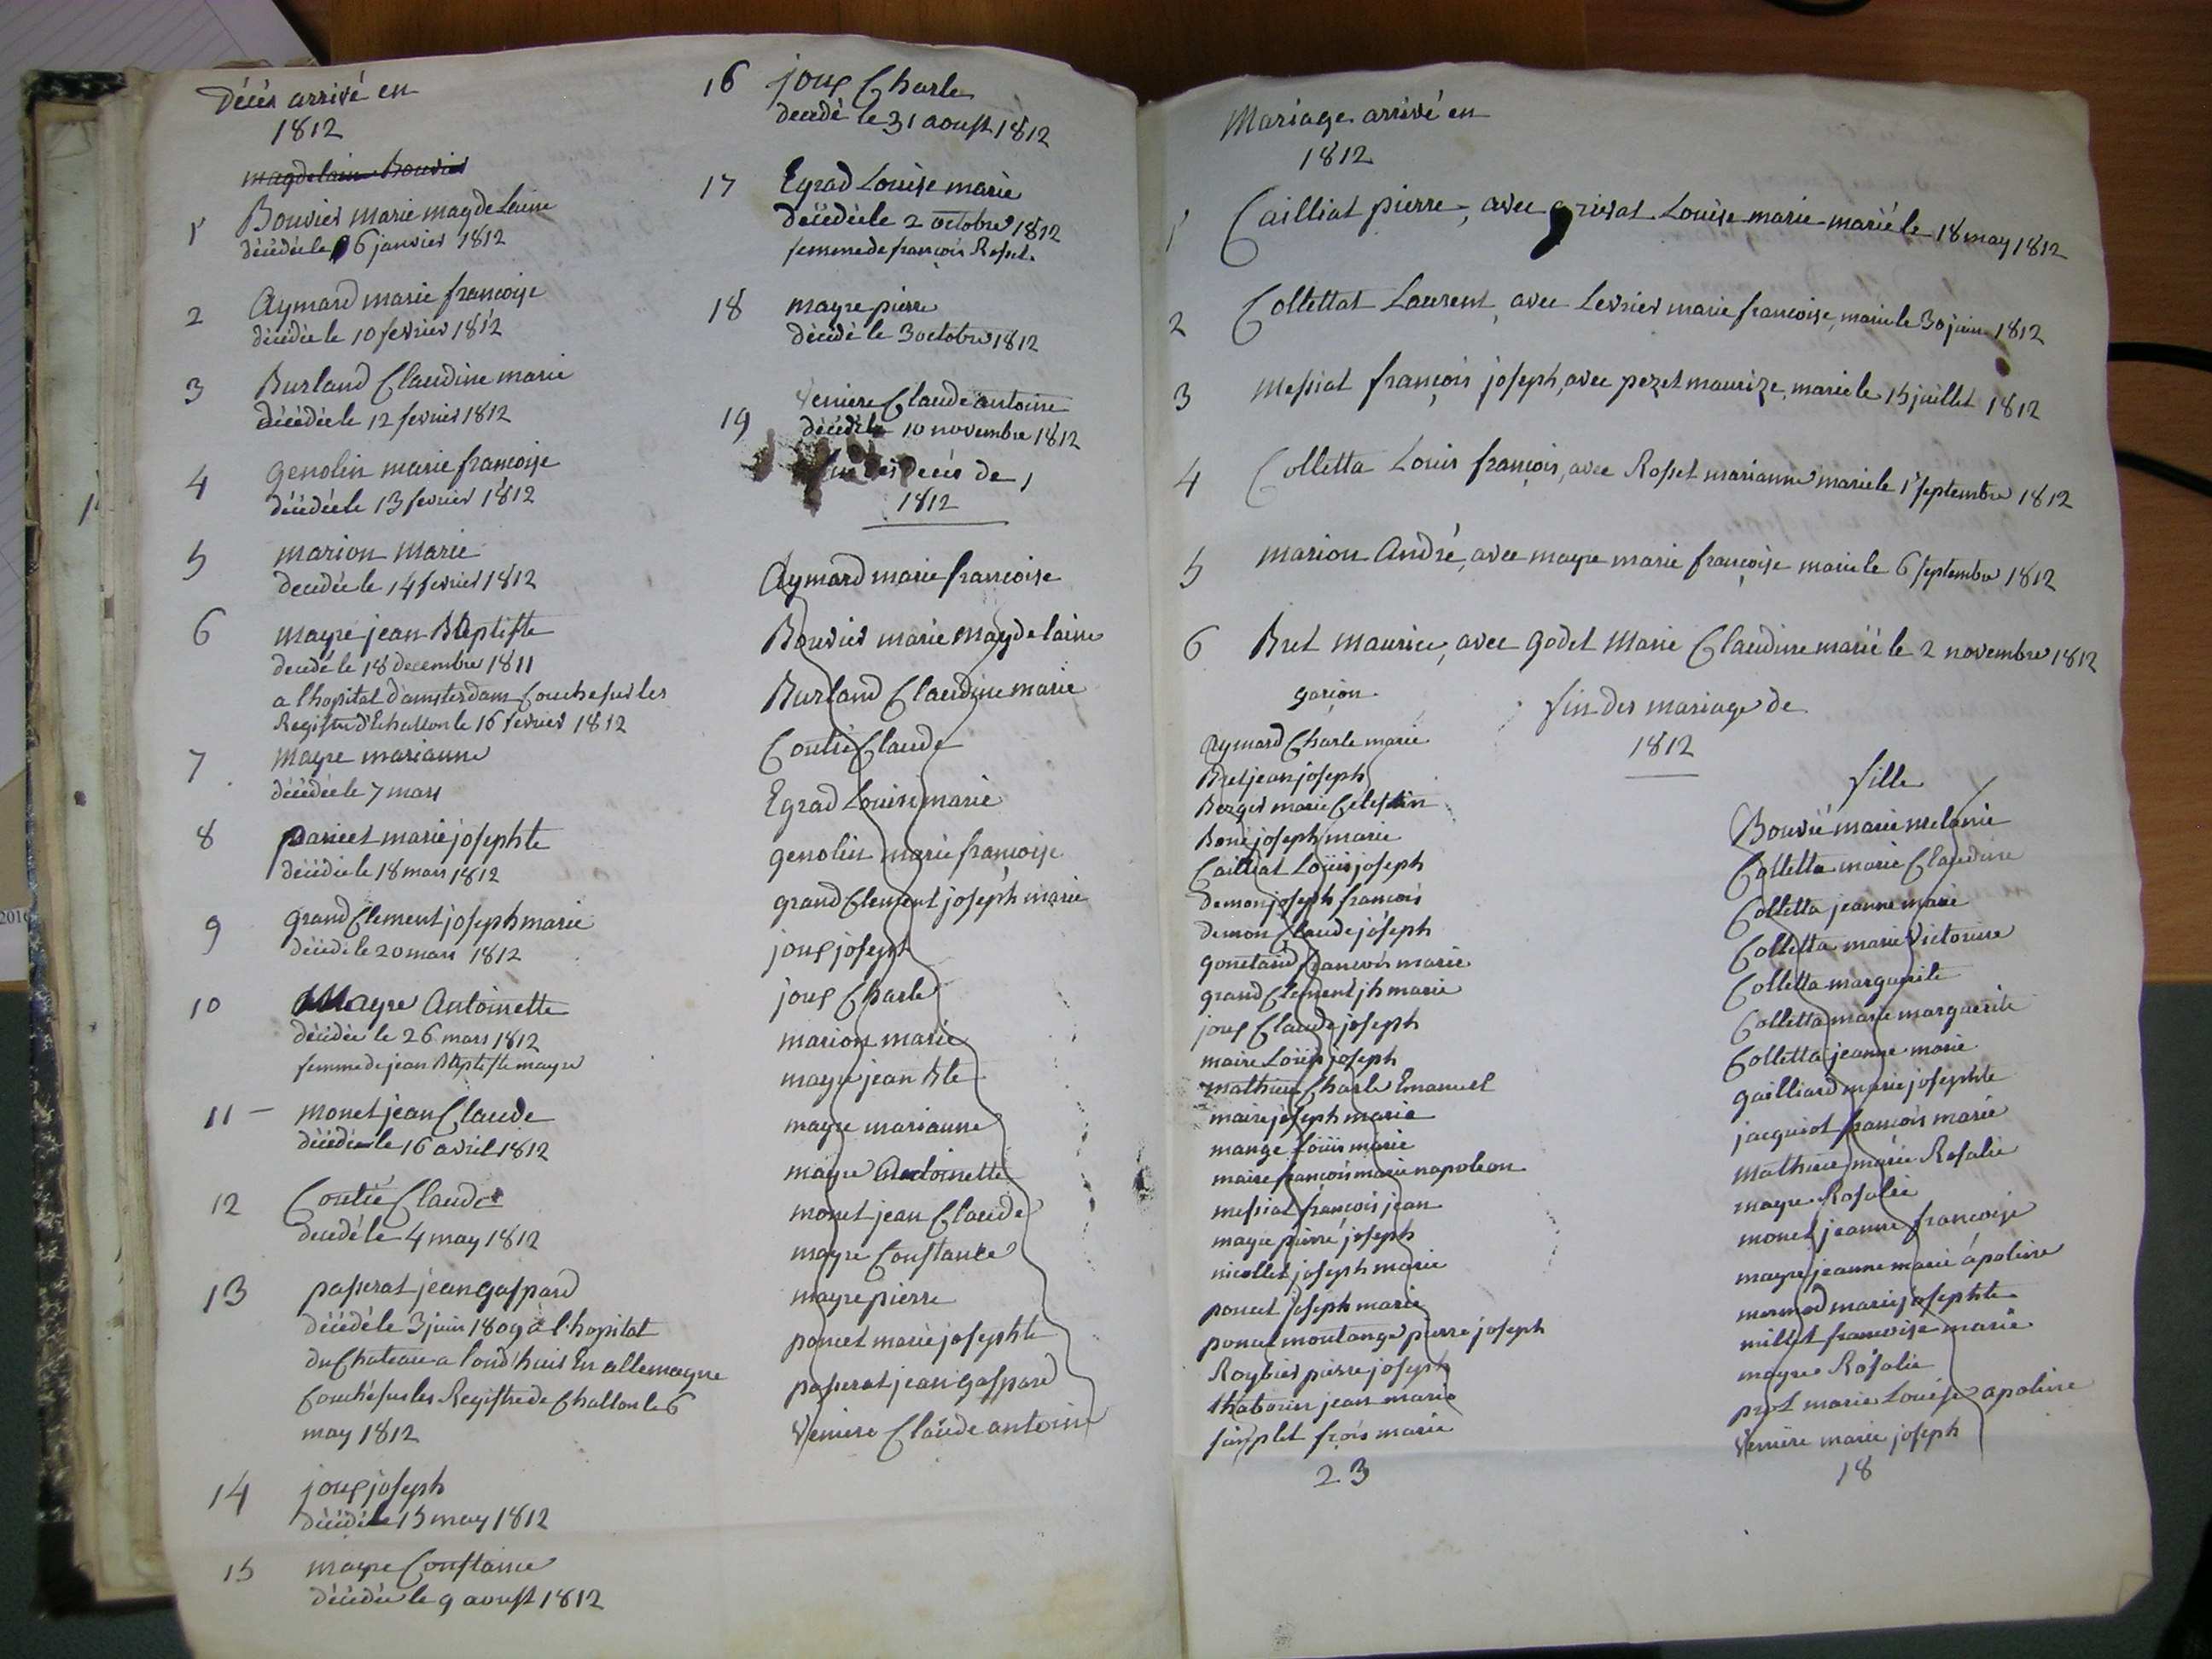 Décés arrivé en
1812
magdelaine Bouvier
1 Bouvier marie magdelaine
décédée le 6 janvier 1812
2 Aymard marie francoise
décédée le 10 fevrier 1812
3 Burland Claudine marie
décédée le 12 fevrier 1812
4 genolin marie francoise
décédée le 13 fevrier 1812
5 marion marie
decedée le 14 fevrier 1812
6 mayre jean Baptiste
decedé le 18 decembre 1811
a l'hopital d'amsterdam Couche sur les
Registre d'Echallon le 16 fevrier 1812
7 mayre marianne
décédée le 7 mars
8 poncet marie josephte
décédée le 18 mars 1812
9 grand Clement joseph marie
décédé le 20 mars 1812
10 Mayre Antoinette
décédée le 26 mars 1812
femme de jean Baptiste mayre
11 — monet jean Claude
décédé le 16 avril 1812
12 Contié Claude
decedé le 4 may 1812
13 passerat jean gaspard
décédé le 3 juin 1809 à l'hopital
du Chateau a En allemagne
Couché sur les Registre de Challon le 6
may 1812
14 joux joseph
décédé le 15 may 1812
15 mayre Constance
décédée le 9 aoust 1812
16 joux Charle
decedé le 31 aoust 1812
17 Egrad Louise marie
décédée le 2 octobre 1812
femme de francois Rosset
18 mayre pierre
décédé le 3 octobre 1812
19 Veniere Claude antoine
décédé le 10 novembre 1812
fin des Decés de
1812
Aymard marie francoise
Bouvier marie magdelaine
Burland Claudine marie
Contié Claude
Egrad Louise marie
genolin marie francoise
grand Clement joseph marie
joux joseph
joux Charle
marion marie
mayre jean Bte
mayre marianne
mayre Antoinette
monet jean Claude
mayre Constance
mayre pierre
poncet marie josephte
passerat jean gaspard
Veniere Claude antoine
Mariage arrivé en
1812
1 Cailliat pierre, avec grivat Louise marie marié le 18 may 1812
2 Collettat Laurent, avec Levrier marie francoise, marié le 30 juin 1812
3 Messiat françois joseph, avec pezet maurize, marié le 15 juillet 1812
4 Colletta Louis françois, avec Rosset marianne marié le 1r septembre 1812
5 marion André, avec mayre marie françoise marié le 6 septembre 1812
6 Bret maurice, avec godet Marie Claudine marié le 2 novembre 1812
fin des mariage de
1812
garçon
Aymard Charle marie
Bret jean joseph
Berger marie Celestin
Boné joseph marie
Cailliat Loüis joseph
demon joseph francois
demon Claude joseph
francois marie
grand Clement jh marie
joux Claude joseph
maire Loüis joseph
mathieu Charle Emanuel
maire joseph marie
mange Loüis marie
maire françois marie napoleon
messiat françois jean
mayre pierre joseph
nicollet joseph marie
poncet joseph marie
poncet montange pierre joseph
Roybier pierre joseph
thaborin jean marie
frois marie
23
fille
Bouvié marie melanie
Colletta marie Claudine
Colletta jeanne marie
Colletta marie Victorine
Colletta marguerite
Colletta marie marguerite
Colletta jeanne marie
gailliard marie josephte
jacquiot francois marie
mathieu marie Rosalie
mayre Rosalie
monet jeanne francoise
mayre jeanne marie apoline
mermod marie josephte
millet francoise marie
mayre Rosalie
prot marie Louise apoline
Veniere marie joseph
18